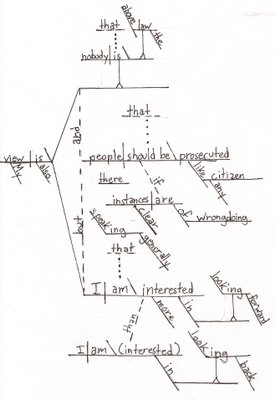 that
above law the
nobody is
and
that
view is
My also
people should be prosecuted
like any citizen
there if
instances are
clear of wrongdoing
speaking generally
but
that
I am interested
more in looking forward
than
I am (interested)
in looking back